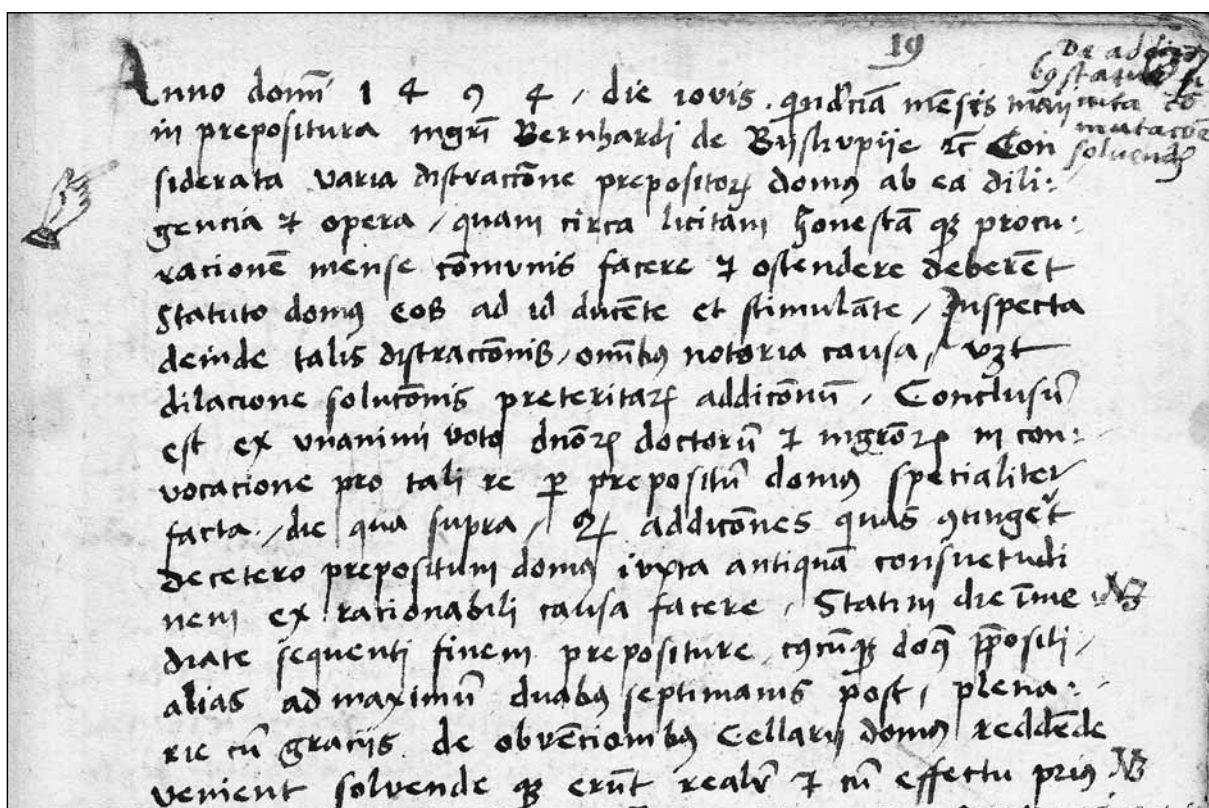 19
De addicō
bꝫ statutū
mutacōe
solvendꝭ
Anno domī 1 4 9 4 / die iovis . qͥndecīa mēsis maij
in prepositura mgrī Bernhardi de ⁊c̄ Con
siderata varia distractōne prepositoꝝ domꝰ ab ea dili:
gencia ⁊ opera / quam circa licitam honestā qꝫ procu:
racionē mense cōmunis facere ⁊ ostendere deberēt
Statuto domꝰ eos ad id ducēte et stimulāte / Inspecta
deinde talis distractōnis / omībꝰ notoria causa / vꝫt
dilacione solucōnis preteritaꝝ addicōnum / Conclusū
est ex vnanimi voto dnōꝝ doctorū ⁊ mgrōꝝ in con:
vocacione pro tali re ꝑ prepositū domꝰ specialiter
facta / die qua supra / ꝙ addicōnes quas ꝯtingēt
decetero prepositum domꝰ iuxta antiquā consuetudi
nem ex rationabili causa facere / Statim die īme NB
diate sequenti finem prepositure cꝰcūqꝫ doꝰ ꝓpositi /
alias ad maximū duabꝰ septimanis post / plena:
rie cū gracijs de obvēcionibꝰ Cellarij domꝰ reddēde
venient solvende qꝫ erūt realr̄ ⁊ cū effectu priꝰ NB